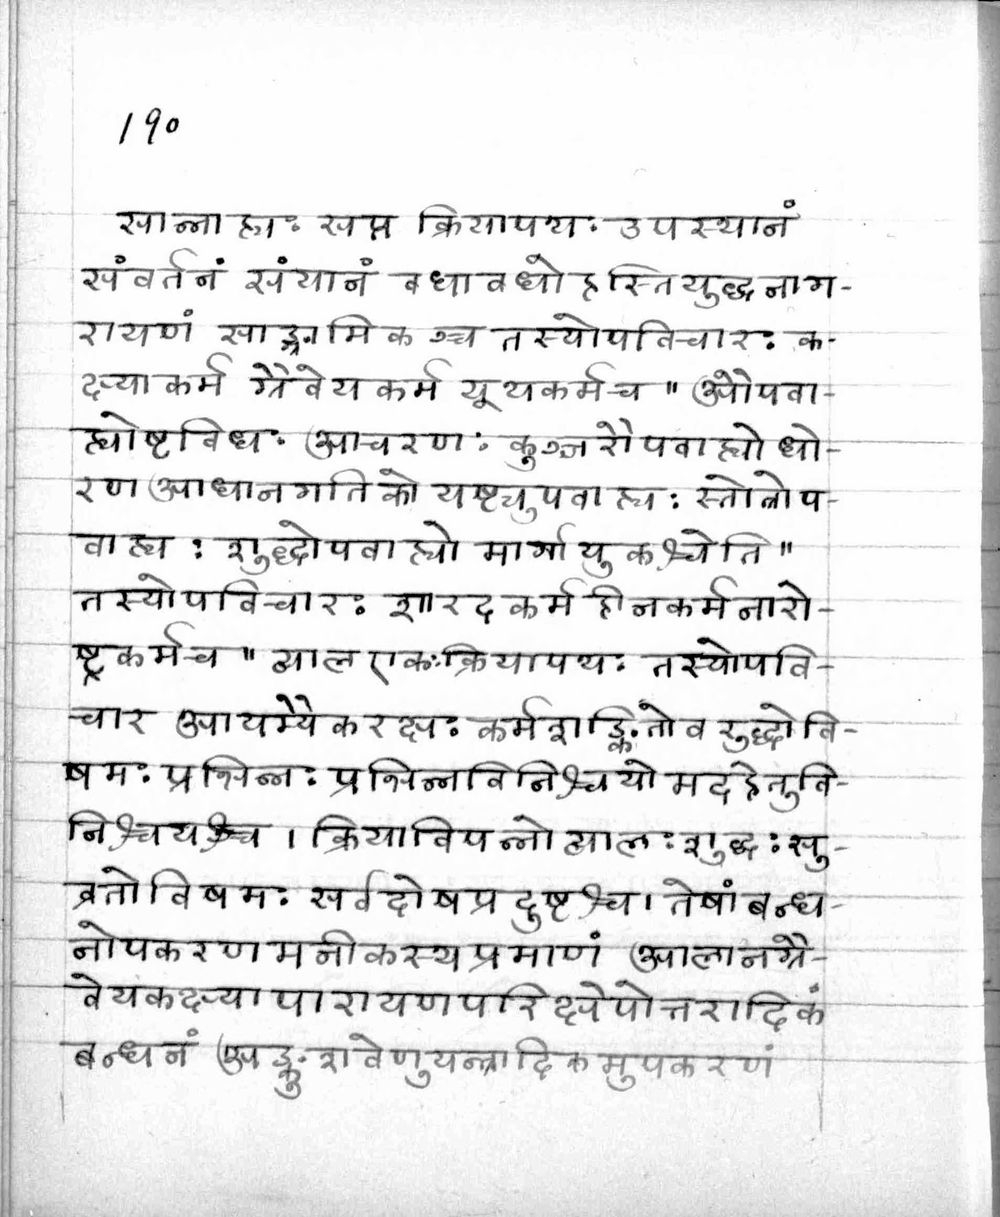 190
सान्नाह्यः सप्त क्रियापथः उपस्थानं
संवर्तनं संयानं वधावधो हस्तियुद्ध नाग-
रायणं साङ्ग्रामिकञ्च तस्योपविचारः क-
क्ष्याकर्म ग्रैवेयकर्म यूथकर्म च " औपवा-
ह्योष्टविधः आचरणः कुञ्जरौपवाह्यो धो-
रण आधानगतिको यष्ट्युपवाह्यः स्तोत्रोप-
वाह्यः शुद्धोपवाह्यो मार्गायुकश्चेति "
तस्योपविचारः शारदकर्म हीनकर्म नारो-
ष्ट्रकर्म च " व्याल एकःक्रियापथः तस्योपवि-
चार आयम्यैकरक्षः कर्मशङ्कितोवरुद्धो वि-
षमः प्रभिन्नः प्रभिन्नविनिश्चयो मदहेतुवि-
निश्चयश्च । क्रियाविपन्नो व्यालः शुद्धः सु-
व्रतो विषमः सर्वदोषप्रदुष्टश्च । तेषां बन्ध-
नोपकरणमनीकस्थप्रमाणं आलानग्रै-
वेयकक्ष्यापारायणपरिक्षेपोत्तरादिकं
बन्धनं अङ्कुशवेणुयन्त्रादिकमुपकरणं